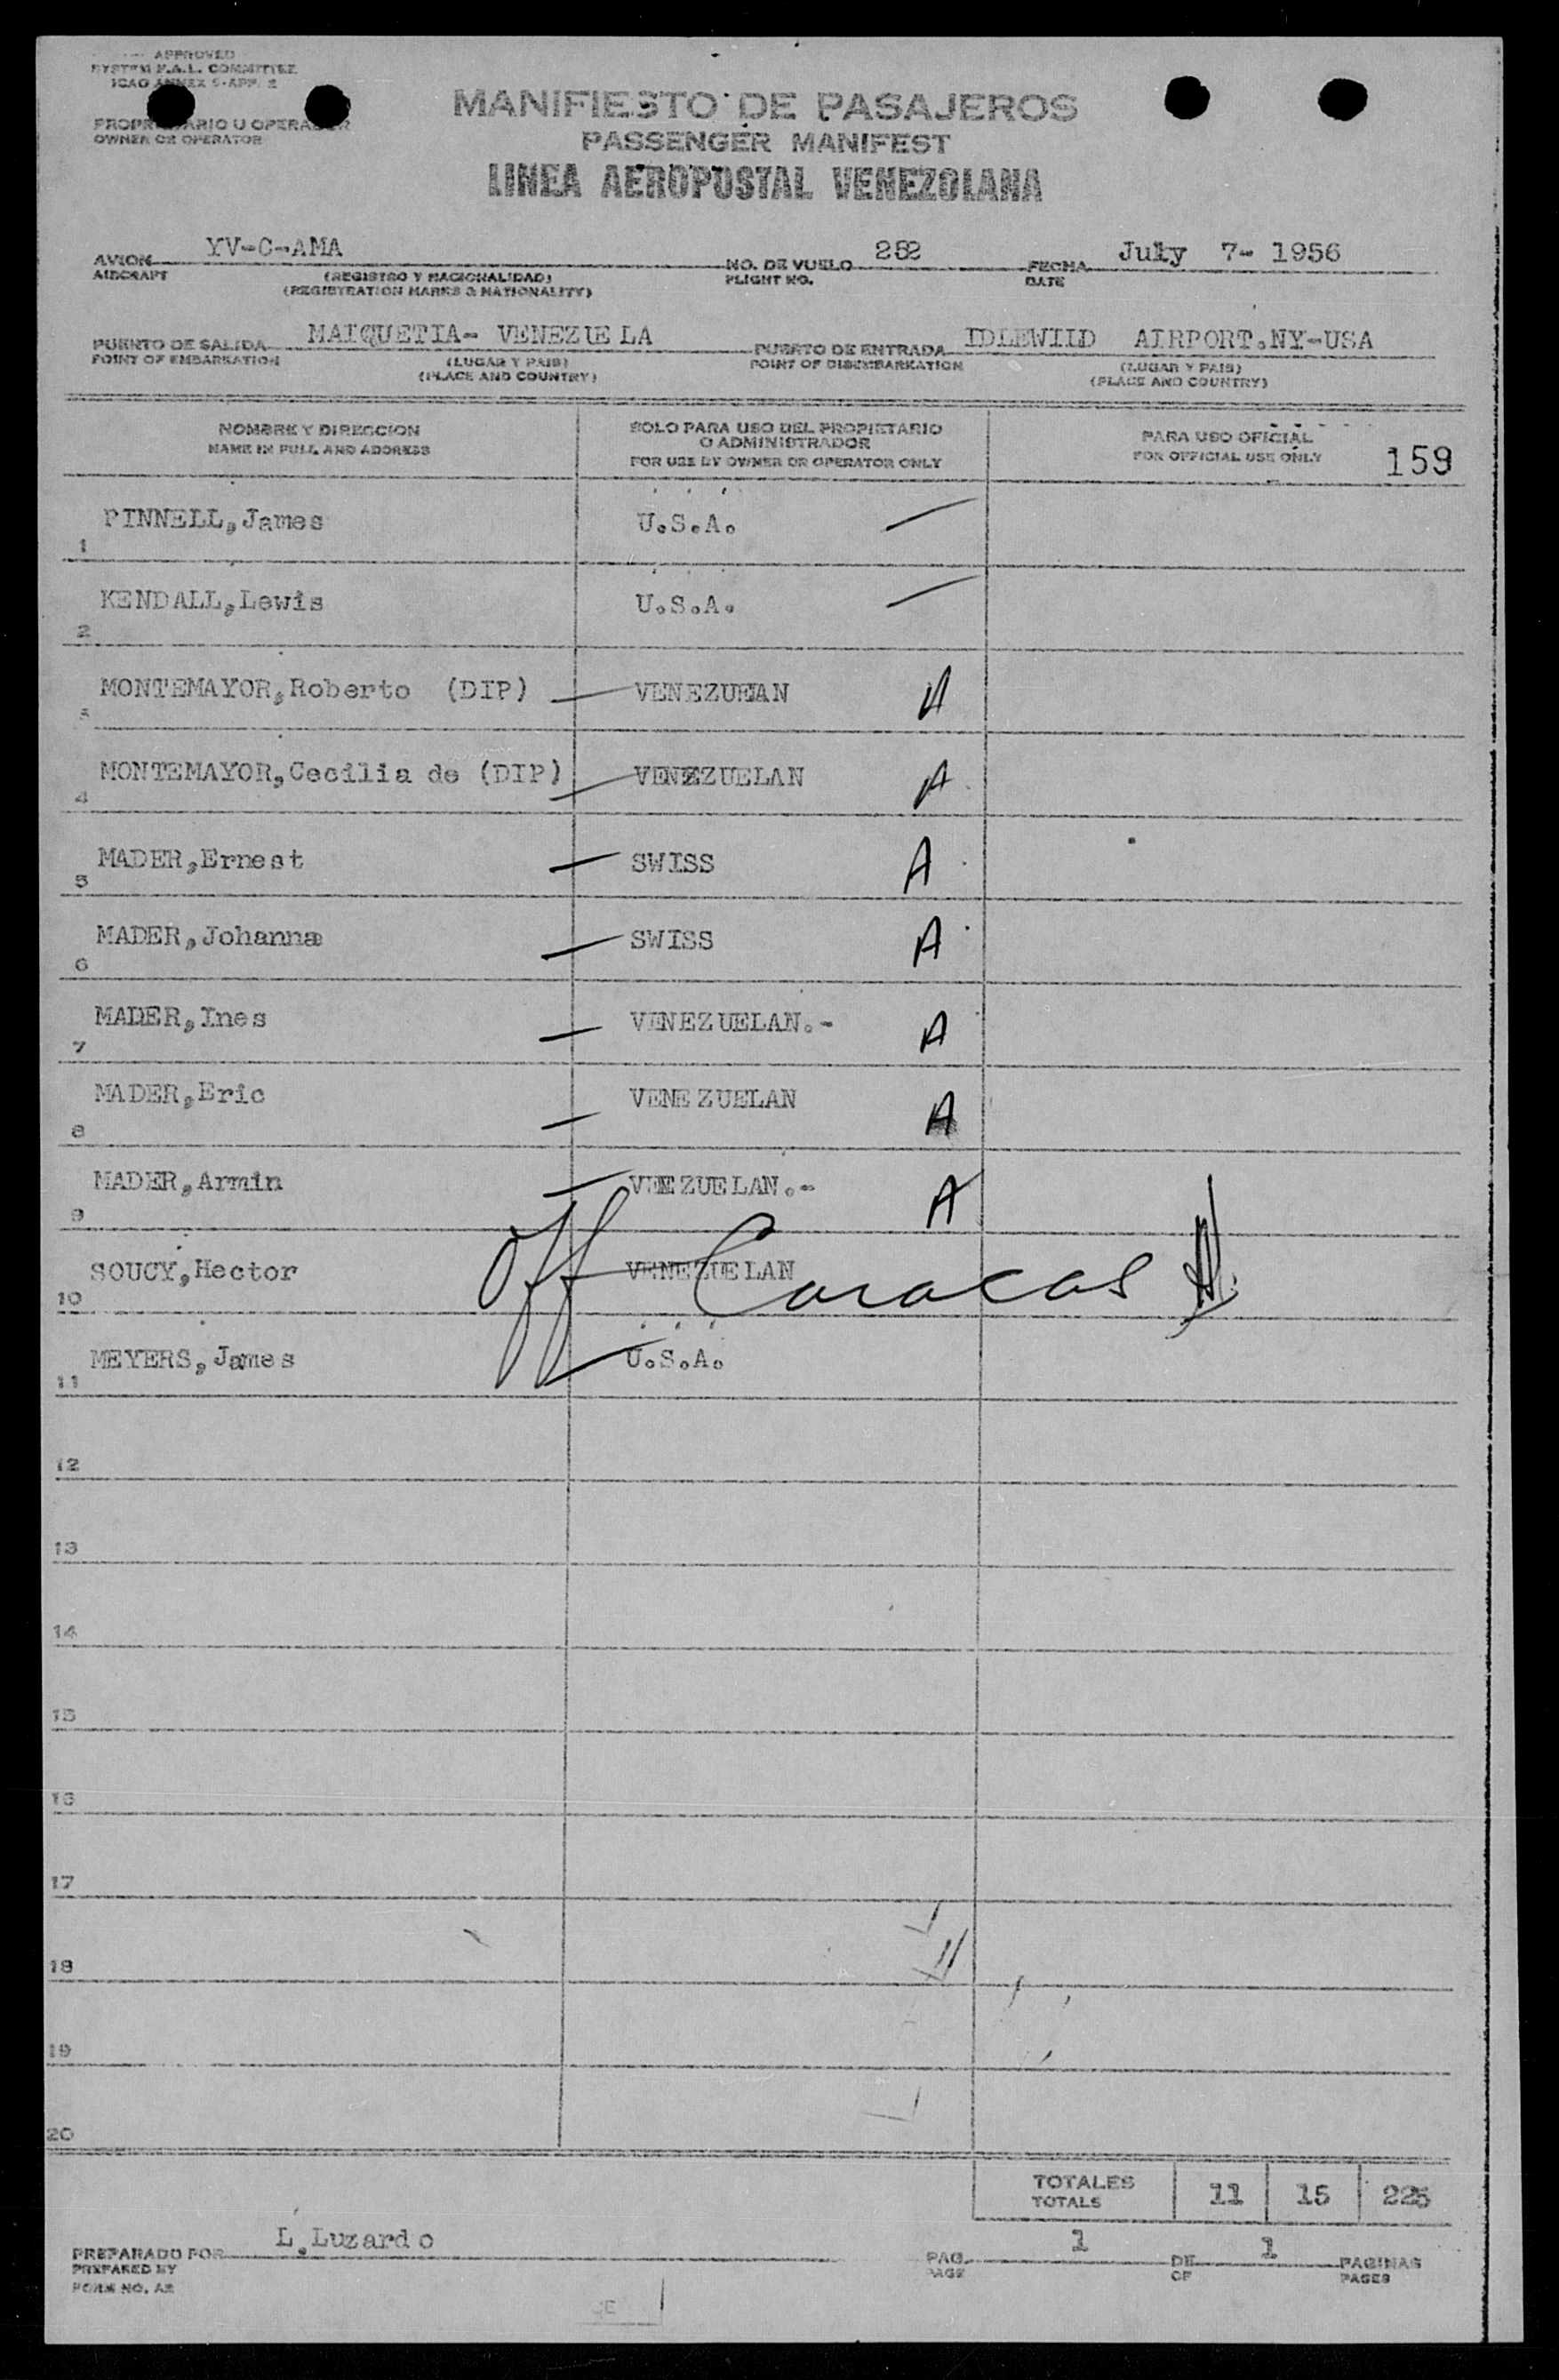 APPROVED
SYSTEM F.A.L. COMMITTEE
ICAO ANNEX 9-APP. 2
OWNER OR OPERATOR
MANIFIESTO DE PASAJEROS
PASSENGER MANIFEST
LINEA AEROPOSTAL VENEZOLANA
AVION YV-C-AMA NO. DE VUELO 252 FECHA July 7- 1956
AIRCRAFT (REGISTRO Y NACIONALIDAD) FLIGHT NO. DATE
(REGISTRATION MARKS & NATIONALITY)
PUERTO DE SALIDA MAIQUETIA- VENEZUELA PUERTO DE ENTRADA IDLEWILD AIRPORT.NY-USA
POINT OF EMBARKATION (LUGAR Y PAIS) POINT OF DISEMBARKATION (LUGAR Y PAIS)
(PLACE AND COUNTRY) (PLACE AND COUNTRY)
NOMBRE Y DIRECCION SOLO PARA USO DEL PROPIETARIO O ADMINISTRADOR PARA USO OFICIAL
NAME IN FULL AND ADDRESS FOR USE BY OWNER OR OPERATOR ONLY FOR OFFICIAL USE ONLY 159
1 PINNELL,James U.S.A.
2 KENDALL,Lewis U.S.A.
3 MONTEMAYOR,Roberto (DIP) VENEZUEAN A
4 MONTEMAYOR,Cecilia de (DIP) VENEZUELAN A
5 MADER,Ernest SWISS A
6 MADER,Johanna SWISS A
7 MADER,Ines VENEZUELAN.- A
8 MADER,Eric VENEZUELAN A
9 MADER,Armin VENEZUELAN.- A
10 SOUCY,Hector VENEZUELAN Off Caracas
11 MEYERS,James U.S.A.
12
13
14
15
16
17
18
19
20
TOTALES
TOTALS 11 15 225
PREPARADO POR L.Luzardo PAG. 1 DE 1 PAGINAS
PREPARED BY PAGE OF PAGES
FORM NO. AR